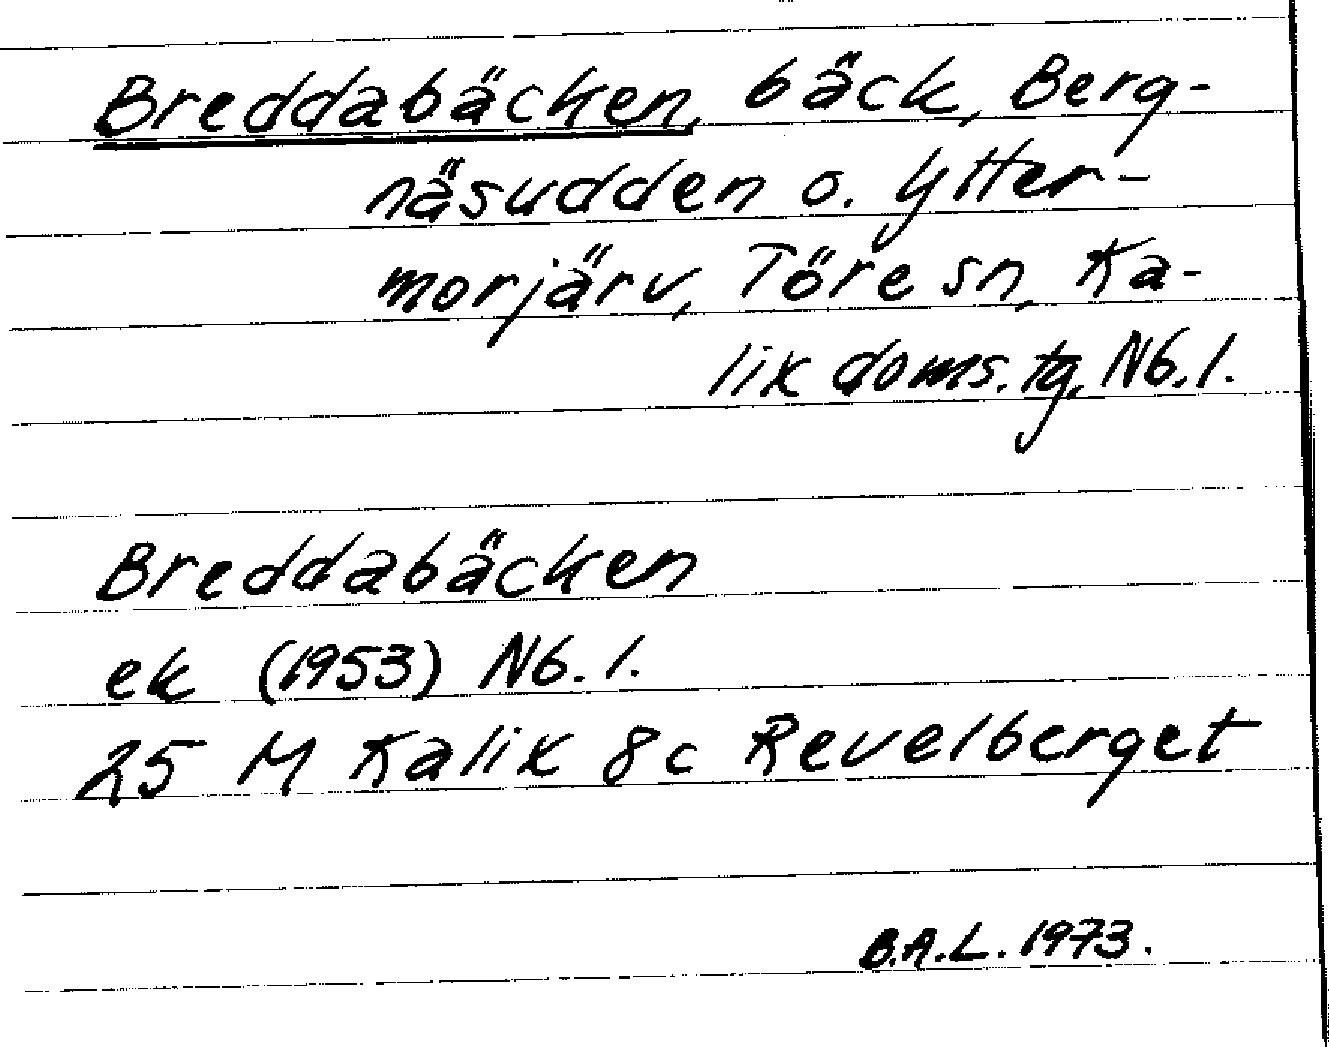 Breddabäcken, bäck, Berg-
näsudden o. Ytter-
morjärv, Töre sn, Ka-
lix doms.tg, Nb.l.
Breddabäcken
ek (1953) Nb.l.
25 M Kalix 8c Revelberget
B.A.L. 1973.